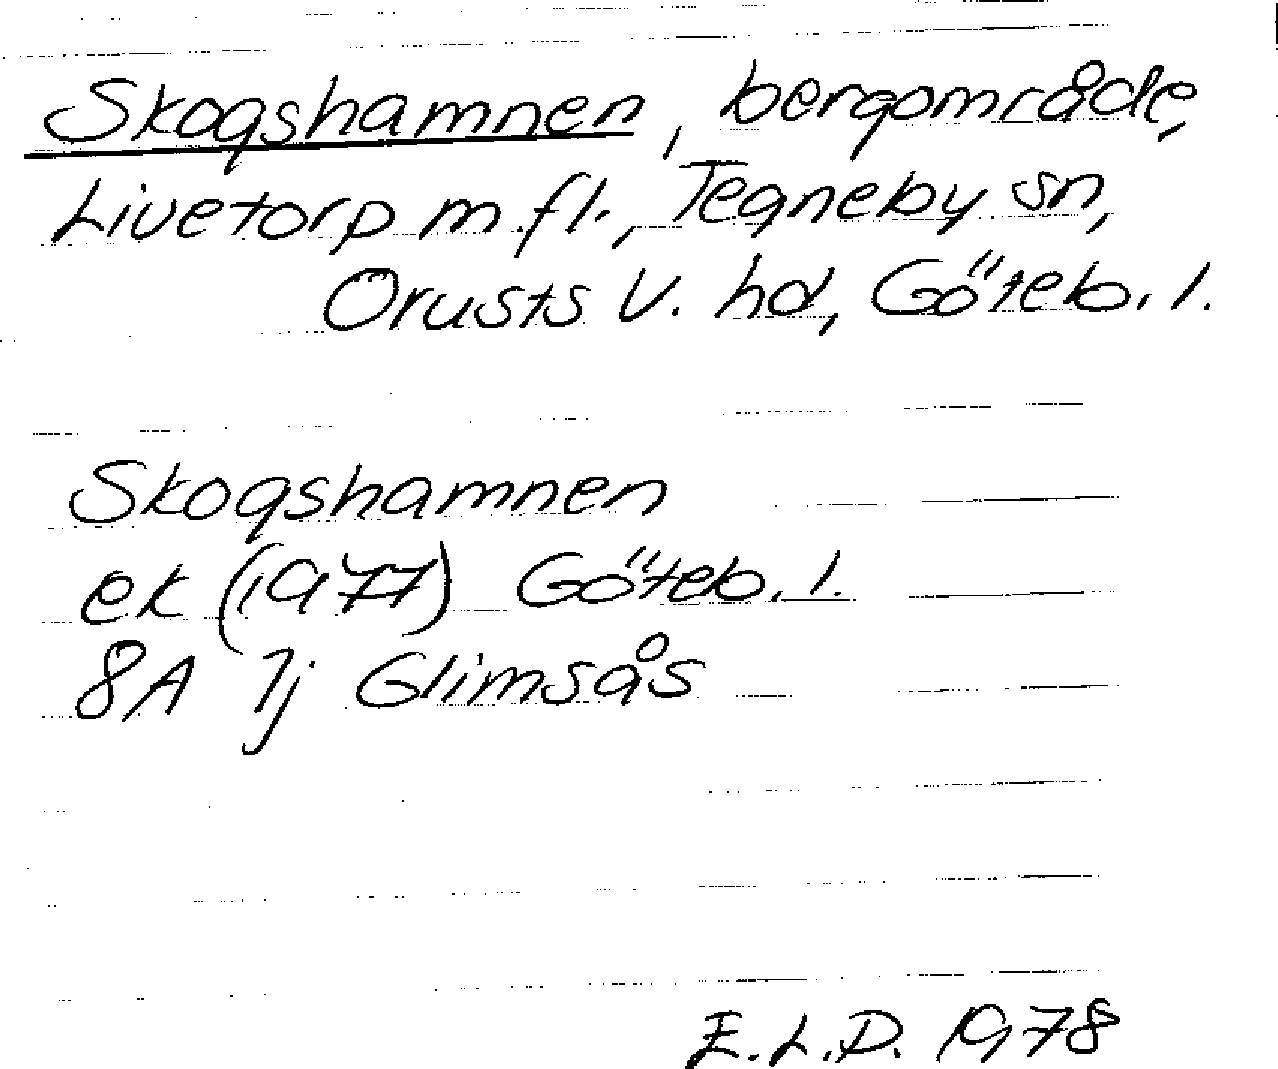 Skogshamnen, bergområde,
Livetorp m.fl., Tegneby sn,
Orusts V. hd, Göteb. l.
Skogshamnen
ek (1977) Göteb. l.
8A 7j Glimsås
E.L.D. 1978